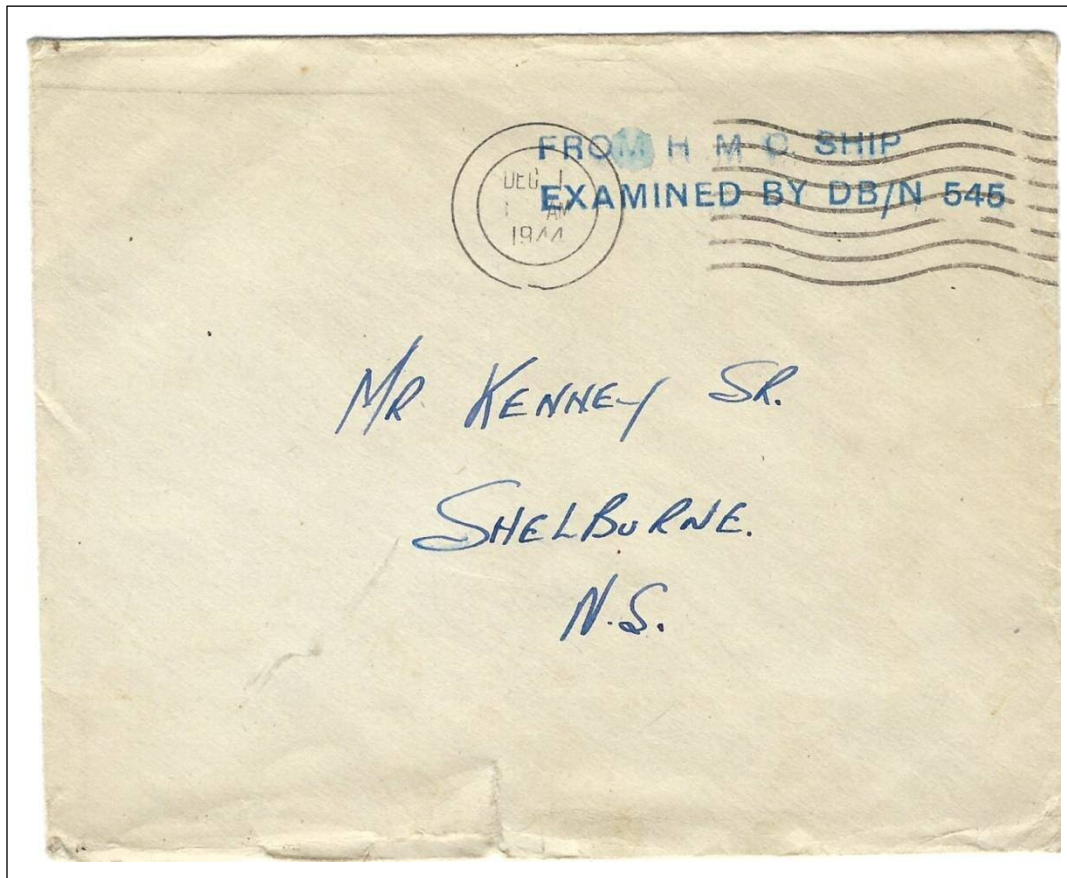 FROM H M C. SHIP
EXAMINED BY DB/N 545
DEC 1
1 AM
1944
MR KENNEY SR.
SHELBURNE.
N.S.